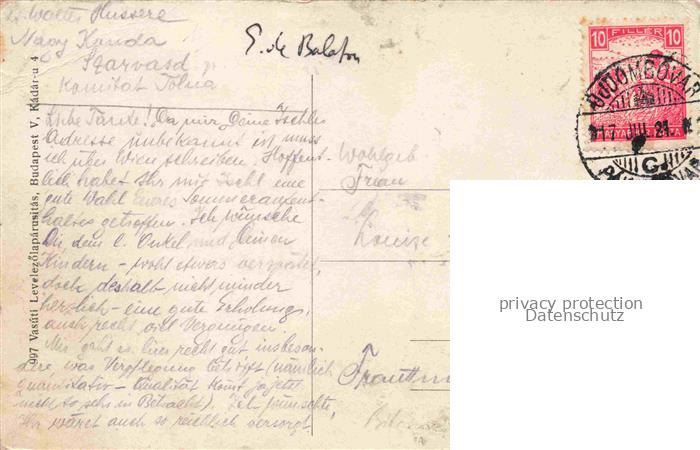 Walter Hussere
Nagy Kanda
Szarvasd
Komitat Tolna
E. de Balaton
10 FILLER 10
DOMBOVAR
17 VII. 21
G
997 Vasúti Levelezőlapárusitás, Budapest V, Kádár-u 4
Liebe Tante! Da mir Deine Ischler
Adresse unbekannt ist muss
ich über Wien schreiben. Hoffent-
lich habet Ihr mit Ischl eine
gute Wahl Eures Sommeraufent-
haltes getroffen. Ich wünsche
Dir, dem l. Onkel und Deinen
Kindern - wohl etwas verspätet,
doch deshalb nicht minder
herzlich - eine gute Erholung,
auch recht viel Vergnügen.
Mir geht es hier recht gut, insbeson-
dere, was Verpflegung betrifft (nämlich
quantitativ - Qualität kommt ja jetzt
nicht so sehr in Betracht). Ich wünschte,
Ihr wäret auch so reichlich versorgt.
Wohlgeb
Frau
Louise
Trauttm
privacy protection
Datenschutz